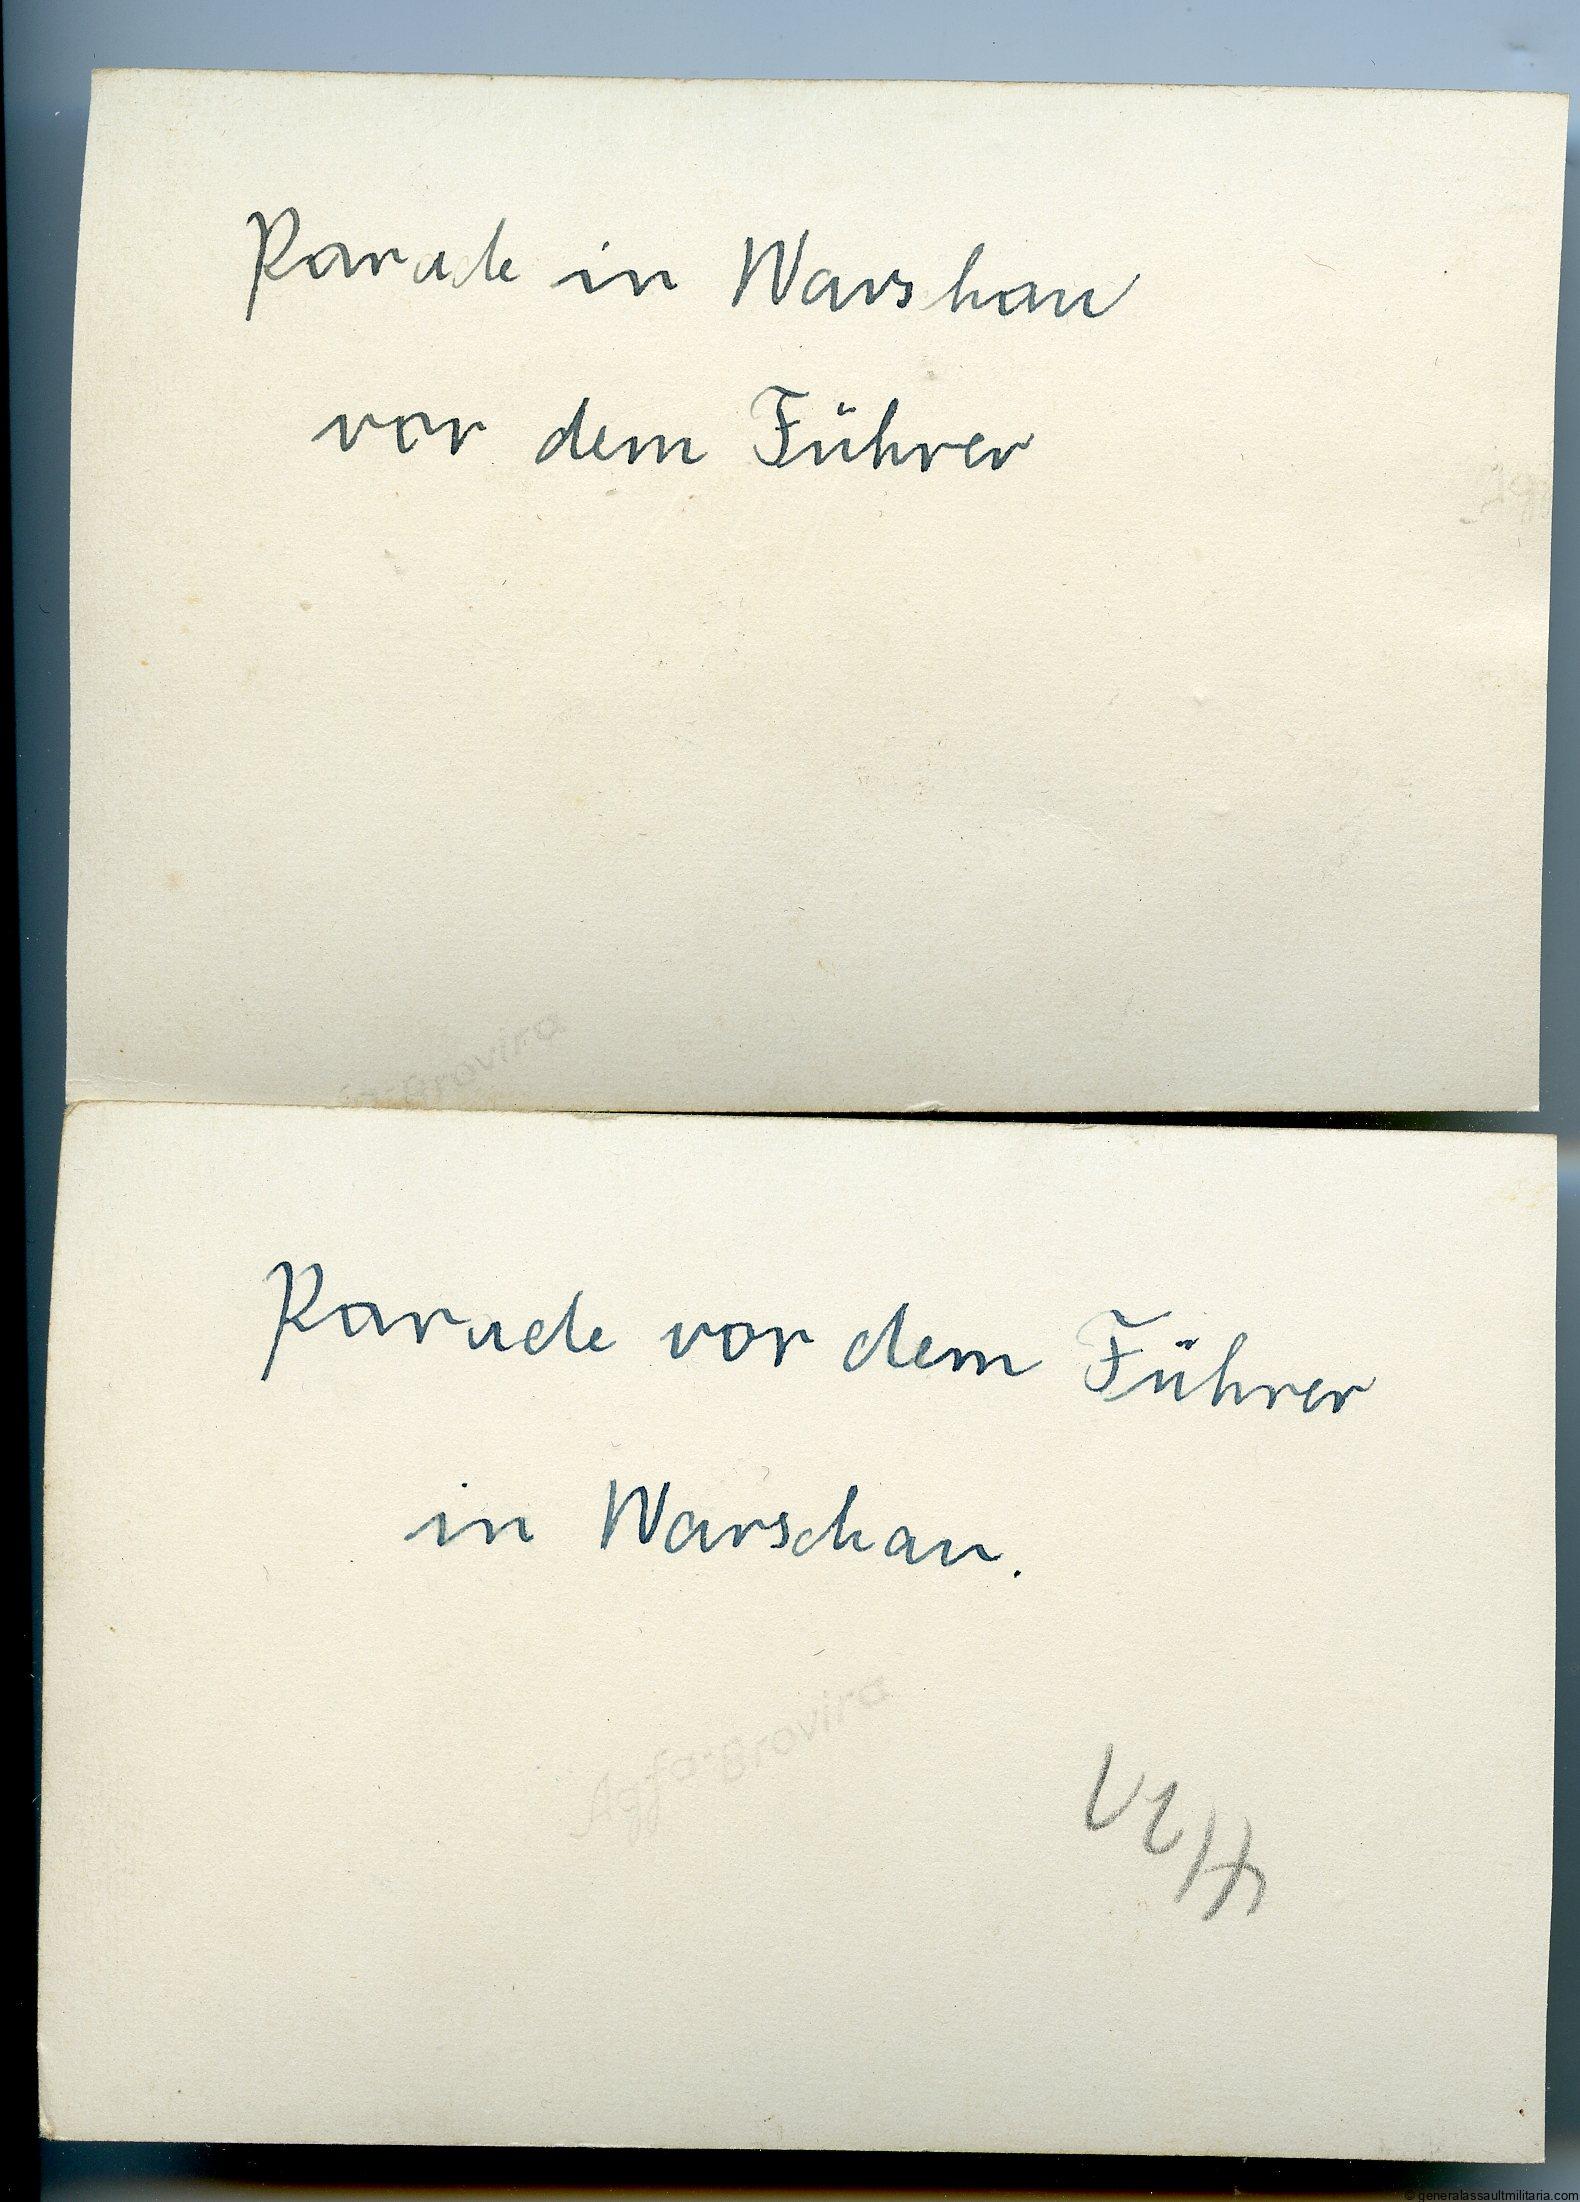 Parade in Warshau
vor dem Führer
Agfa-Brovira
Parade vor dem Führer
in Warschau.
Agfa-Brovira
© generalassaultmilitaria.com